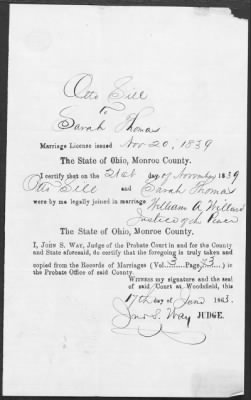 Otto Sill
to
Sarah Thomas
Marriage License issued Nov 20, 1839
The State of Ohio, Monroe County.
I certify that on the 21st day of November 1839
Otto Sill and Sarah Thomas
were by me legally joined in marriage
William A Willard
Justice of the Peace
The State of Ohio, Monroe County.
I, JOHN S. WAY, Judge of the Probate Court in and for the County
and State aforesaid, do certify that the foregoing is truly taken and
copied from the Records of Marriages (Vol. 3 Page 73) in
the Probate Office of said County.
WITNESS my signature and the seal
of said Court at Woodsfield, this
17th day of June 1863.
Jno. S. Way JUDGE.